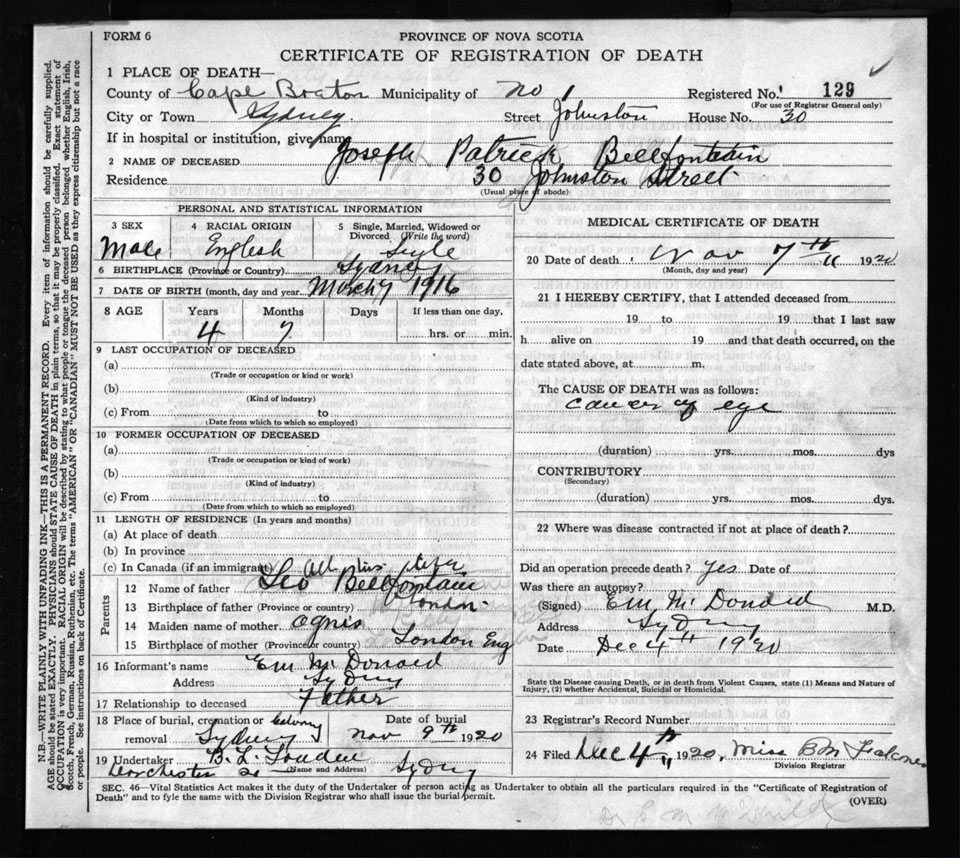 FORM 6
PROVINCE OF NOVA SCOTIA
CERTIFICATE OF REGISTRATION OF DEATH
1 PLACE OF DEATH—
County of Cape Breton Municipality of No 1 Registered No. 129
(For use of Registrar General only)
City or Town Sydney Street Johnston House No. 30
If in hospital or institution, give name
2 NAME OF DECEASED Joseph Patrick Bellfontain
Residence 30 Johnston Street
(Usual place of abode)
PERSONAL AND STATISTICAL INFORMATION
3 SEX Male
4 RACIAL ORIGIN English
5 Single, Married, Widowed or Divorced (Write the word)
6 BIRTHPLACE (Province or Country) Sydney
7 DATE OF BIRTH (month, day and year) March 7 1916
8 AGE Years 4 Months 7 Days If less than one day, hrs. or min.
9 LAST OCCUPATION OF DECEASED
(a)
(Trade or occupation or kind or work)
(b)
(Kind of industry)
(c) From to
(Date from which to which so employed)
10 FORMER OCCUPATION OF DECEASED
(a)
(Trade or occupation or kind of work)
(b)
(Kind of industry)
(c) From to
(Date from which to which so employed)
11 LENGTH OF RESIDENCE (In years and months)
(a) At place of death
(b) In province
(c) In Canada (if an immigrant) all his life
Parents
12 Name of father Leo Bellfontain
13 Birthplace of father (Province or country) London
14 Maiden name of mother Agnes
15 Birthplace of mother (Province or country) London Eng
16 Informant's name Em McDonald
Address Sydney
17 Relationship to deceased Father
18 Place of burial, cremation or removal Calvary Sydney
Date of burial Nov 9th 1920
19 Undertaker B. L.
(Name and Address)
Dorchester St Sydney
MEDICAL CERTIFICATE OF DEATH
20 Date of death Nov 7th 1920
(Month, day and year)
21 I HEREBY CERTIFY, that I attended deceased from
19 to 19 that I last saw
h alive on 19 and that death occurred, on the
date stated above, at m.
The CAUSE OF DEATH was as follows:
cancer of eye
(duration) yrs. mos. dys
CONTRIBUTORY
(Secondary)
(duration) yrs. mos. dys.
22 Where was disease contracted if not at place of death?
Did an operation precede death? Yes Date of
Was there an autopsy?
(Signed) Em McDonald M.D.
Address Sydney
Date Dec 4th 1920
State the Disease causing Death, or in death from Violent Causes, state (1) Means and Nature of
Injury, (2) whether Accidental, Suicidal or Homicidal.
23 Registrar's Record Number
24 Filed Dec 4th 1920, Miss B M
Division Registrar
SEC. 46—Vital Statistics Act makes it the duty of the Undertaker or person acting as Undertaker to obtain all the particulars required in the "Certificate of Registration of
Death" and to fyle the same with the Division Registrar who shall issue the burial permit.
(OVER)
N.B.—WRITE PLAINLY WITH UNFADING INK—THIS IS A PERMANENT RECORD. Every item of information should be carefully supplied.
AGE should be stated EXACTLY. PHYSICIANS should STATE CAUSE OF DEATH in plain terms, so that it may be properly classified. Exact statement of
OCCUPATION is very important. RACIAL ORIGIN will be described by stating to what people or tongue the deceased person belonged whether English, Irish,
Scotch, French, German, Russian, Ruthenian, etc. The terms "AMERICAN" OR "CANADIAN" MUST NOT BE USED as they express citizenship but not a race
or people. See instructions on back of Certificate.